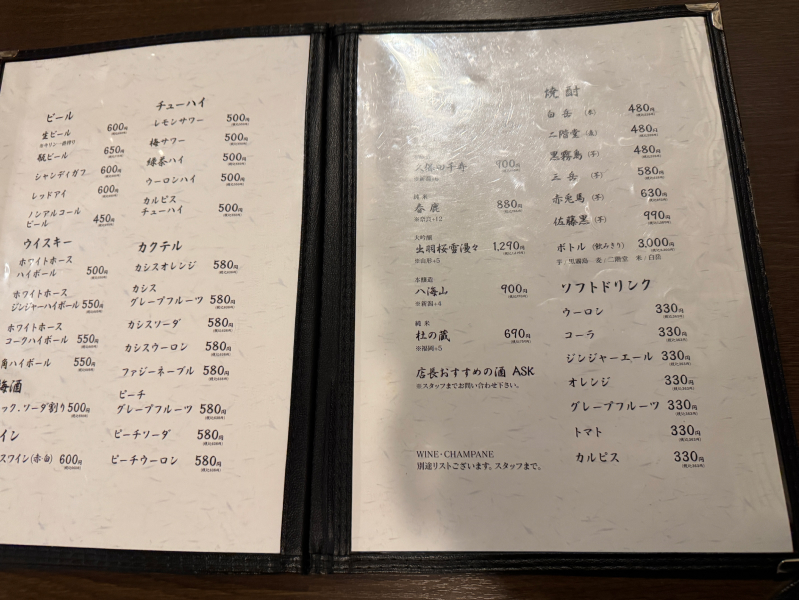 ビール
生ビール 600円
瓶ビール 650円
シャンディガフ 600円
レッドアイ 600円
ノンアルコール
ビール 450円
ウイスキー
ホワイトホース
ハイボール 500円
ホワイトホース
ジンジャーハイボール 550円
ホワイトホース
コークハイボール 550円
角ハイボール 550円
梅酒
ック.ソーダ割り 500円
イン
スワイン(赤白) 600円
チューハイ
レモンサワー 500円
梅サワー 500円
緑茶ハイ 500円
ウーロンハイ 500円
カルピス
チューハイ 500円
カクテル
カシスオレンジ 580円
カシス
グレープフルーツ 580円
カシスソーダ 580円
カシスウーロン 580円
ファジーネーブル 580円
ピーチ
グレープフルーツ 580円
ピーチソーダ 580円
ピーチウーロン 580円
久保田千寿 900円
純米
春鹿 880円
※奈良+12
大吟醸
出羽桜雪漫々 1,290円
※山形+5
本醸造
八海山 900円
※新潟+4
純米
杜の蔵 690円
※福岡+5
店長おすすめの酒 ASK
※スタッフまでお問い合わせ下さい。
WINE・CHAMPANE
別途リストございます。スタッフまで。
焼酎
白岳 (米) 480円
二階堂 (麦) 480円
黒霧島 (芋) 480円
三岳 (芋) 580円
赤兎馬 (芋) 630円
佐藤黒 (芋) 990円
ボトル (飲みきり) 3,000円
芋/黒霧島 麦/二階堂 米/白岳
ソフトドリンク
ウーロン 330円
コーラ 330円
ジンジャーエール 330円
オレンジ 330円
グレープフルーツ 330円
トマト 330円
カルピス 330円